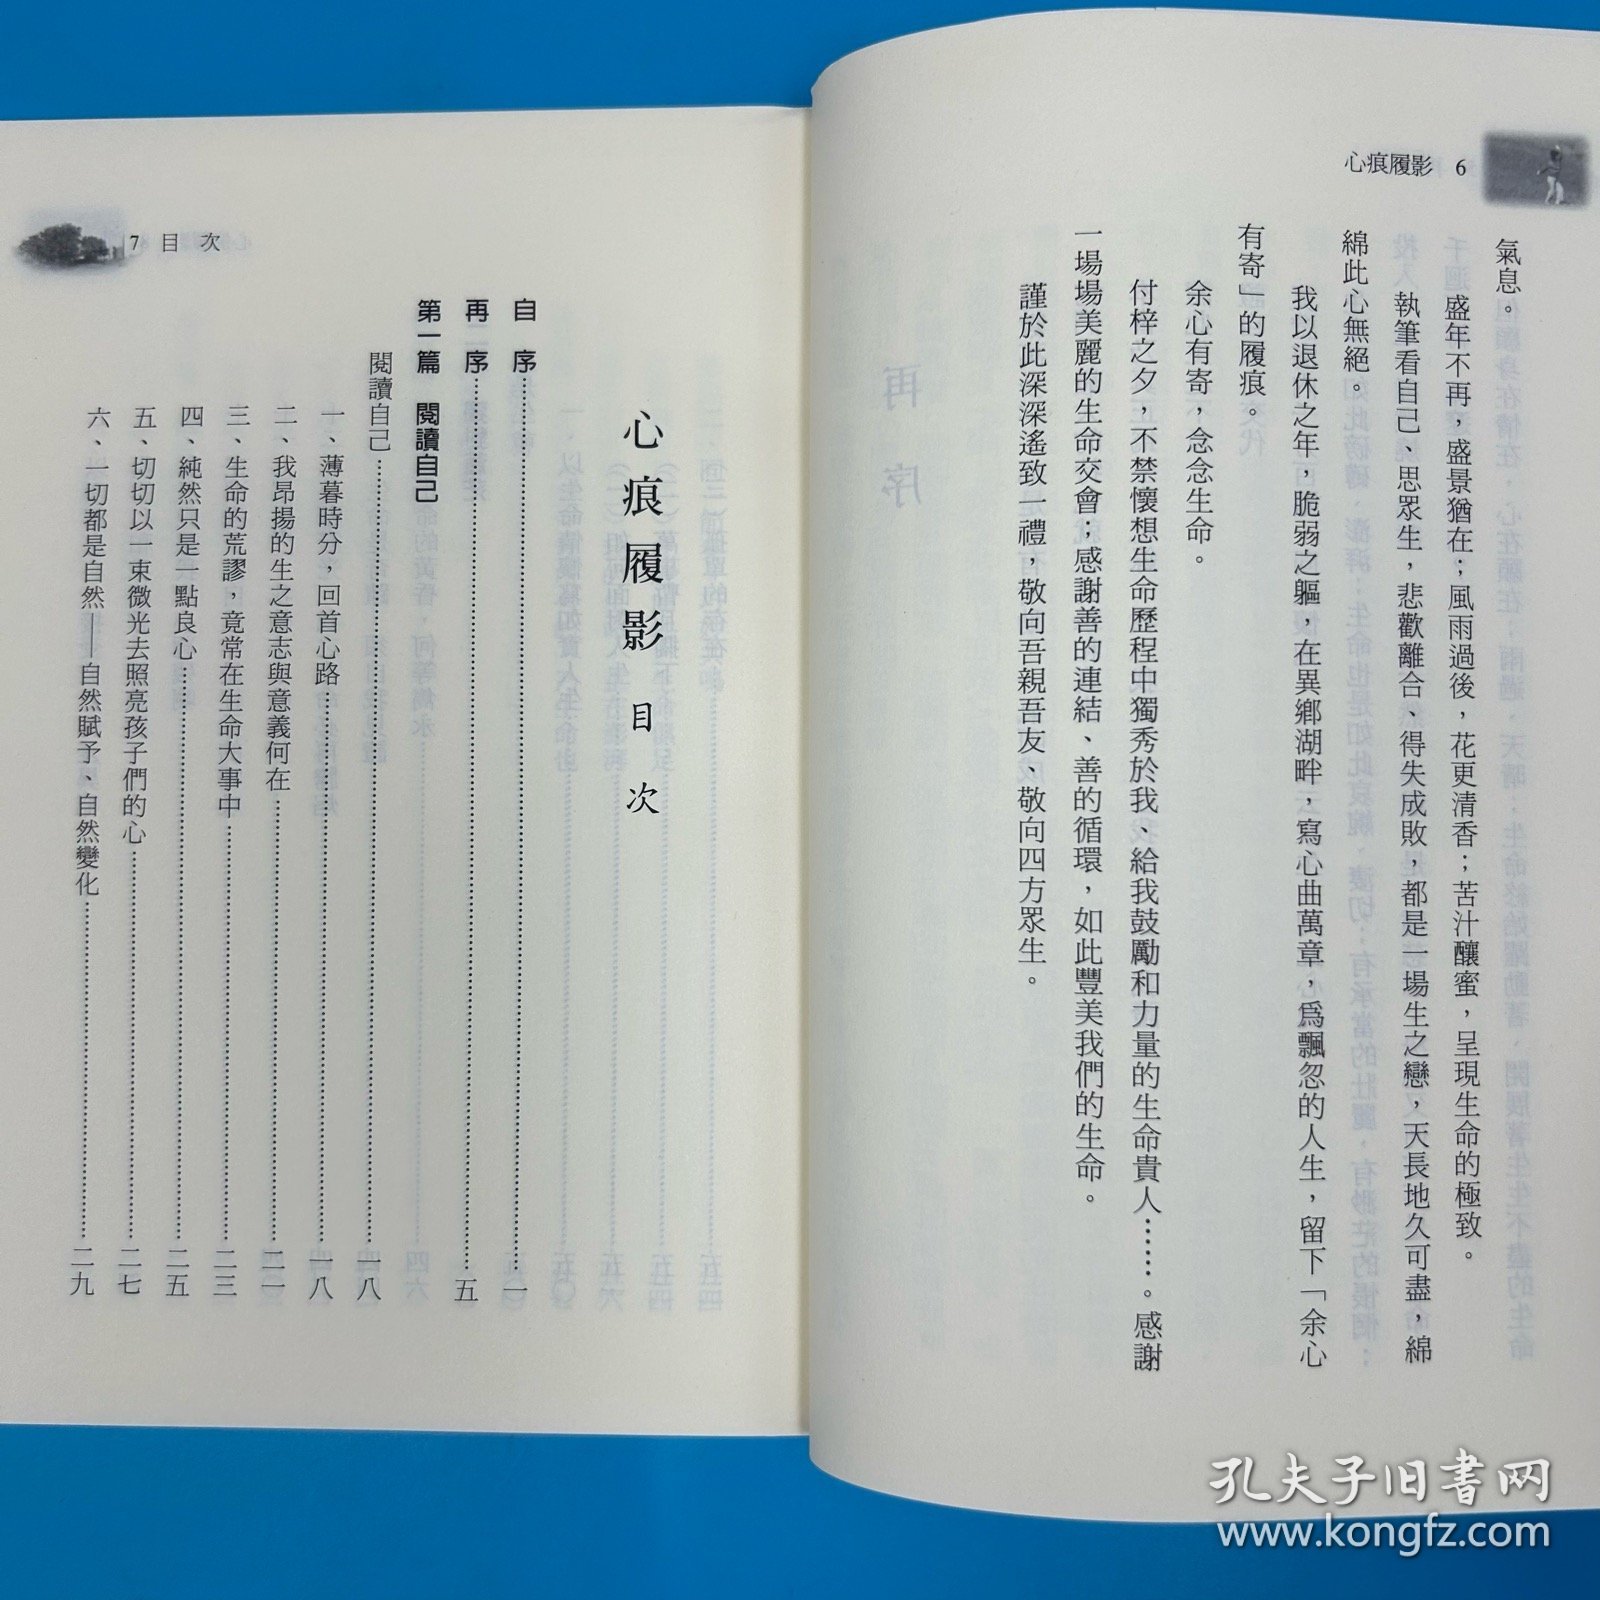 心痕履影 6
氣息。
盛年不再，盛景猶在；風雨過後，花更清香；苦汁釀蜜，呈現生命的極致。
執筆看自己、思眾生，悲歡離合、得失成敗，都是一場生之戀，天長地久可盡，綿
綿此心無絕。
我以退休之年，脆弱之軀，在異鄉湖畔，寫心曲萬章，為飄忽的人生，留下「余心
有寄」的履痕。
余心有寄，念念生命。
付梓之夕，不禁懷想生命歷程中獨秀於我、給我鼓勵和力量的生命貴人……。感謝
一場場美麗的生命交會；感謝善的連結、善的循環，如此豐美我們的生命。
謹於此深深遙致一禮，敬向吾親吾友、敬向四方眾生。
7 目次
心痕履影 目次
自序……一
再序……五
第一篇 閱讀自己
閱讀自己……一八
一、薄暮時分，回首心路……一八
二、我昂揚的生之意志與意義何在……二一
三、生命的荒謬，竟常在生命大事中……二三
四、純然只是一點良心……二五
五、切切以一束微光去照亮孩子們的心……二七
六、一切都是自然——自然賦予、自然變化……二九
孔夫子旧书网
www.kongfz.com